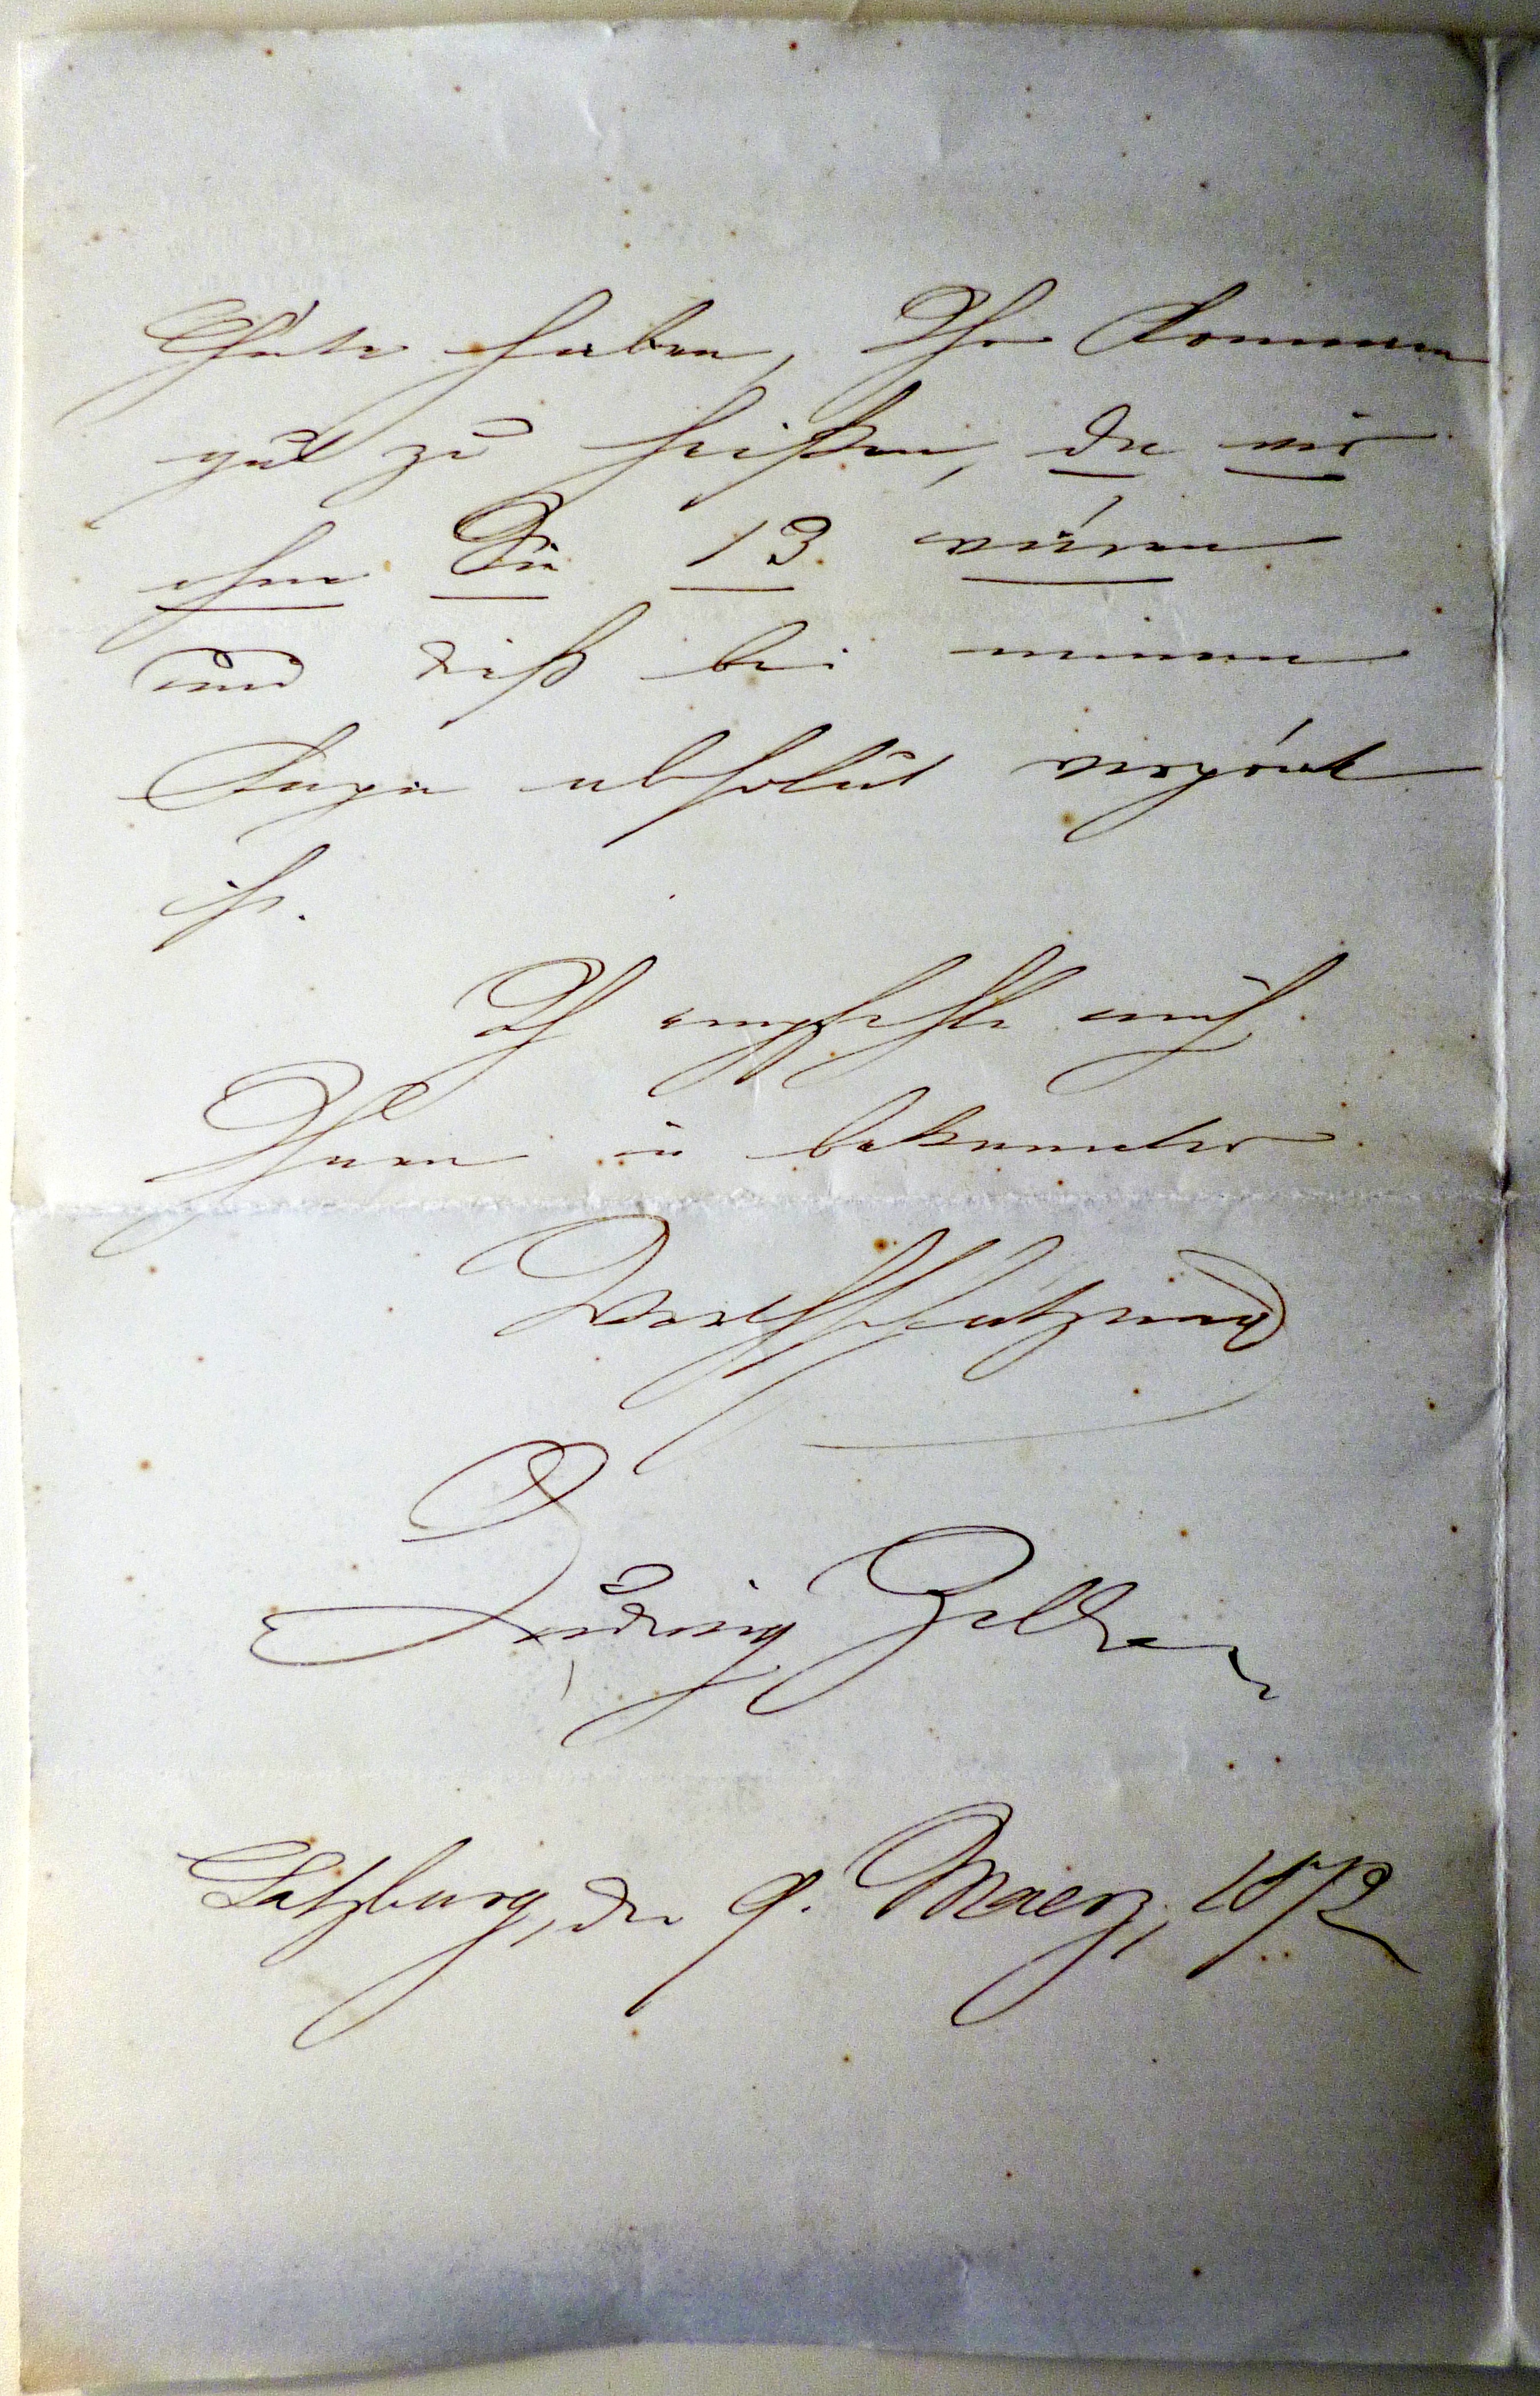 Güte haben, Ihr Kommen
gut zu heißen, da wir
ohne Sie 13 wären
und dieß bei meinem
Papa absolut verpönt
ist.
Ich empfehle mich
Ihnen in bekannter
Werthschätzung
Ludwig Zeller
Salzburg, den 9. Maerz, 1872